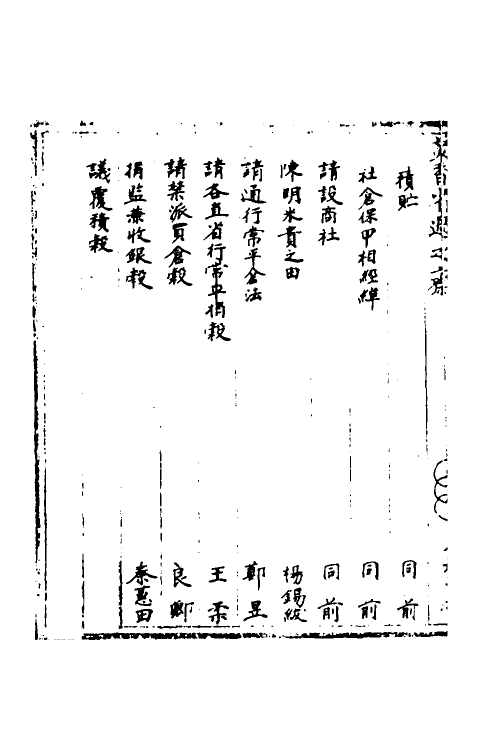 積貯 同前
社倉保甲相經緯 同前
請設商社 同前
陳明米貴之由 楊錫紱
請通行常平倉法 鄭昱
請各直省行常平捐穀 王柔
請禁派買倉穀 良卿
捐監兼收銀穀 秦蕙田
議覆積穀